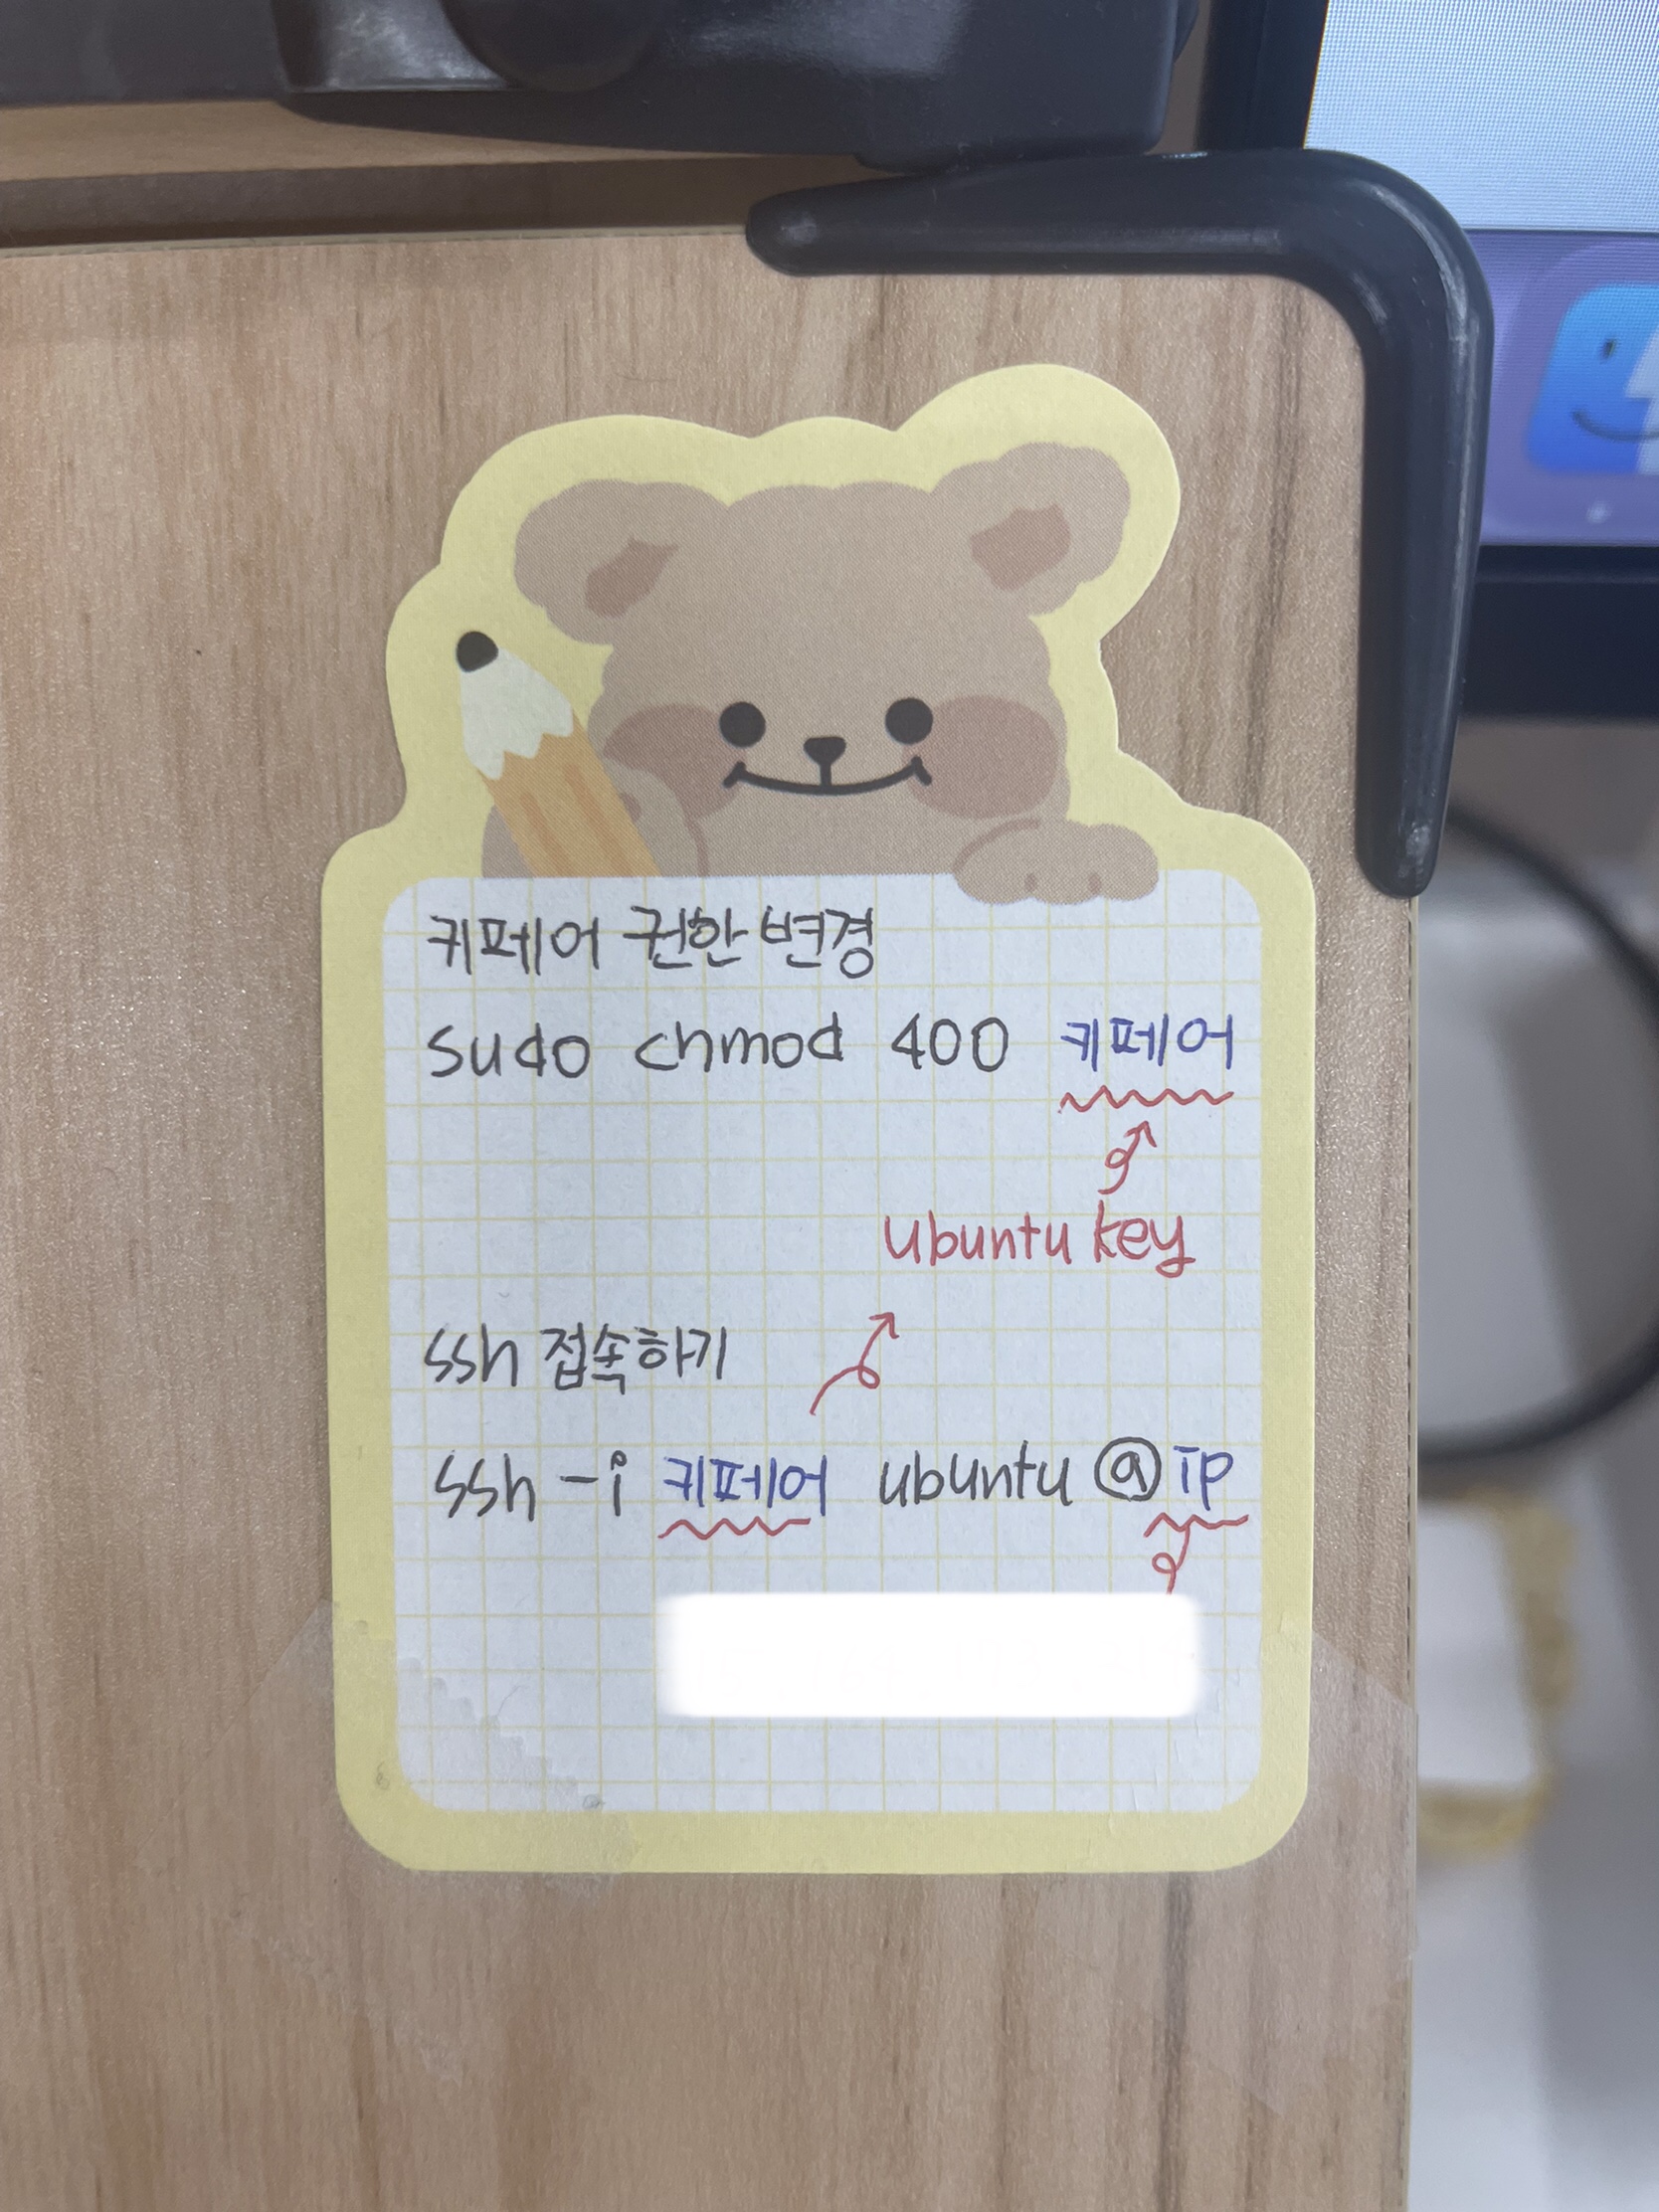 키페어 권한 변경
sudo chmod 400 키페어
ubuntu key
ssh 접속하기
ssh -i 키페어 ubuntu @ ip